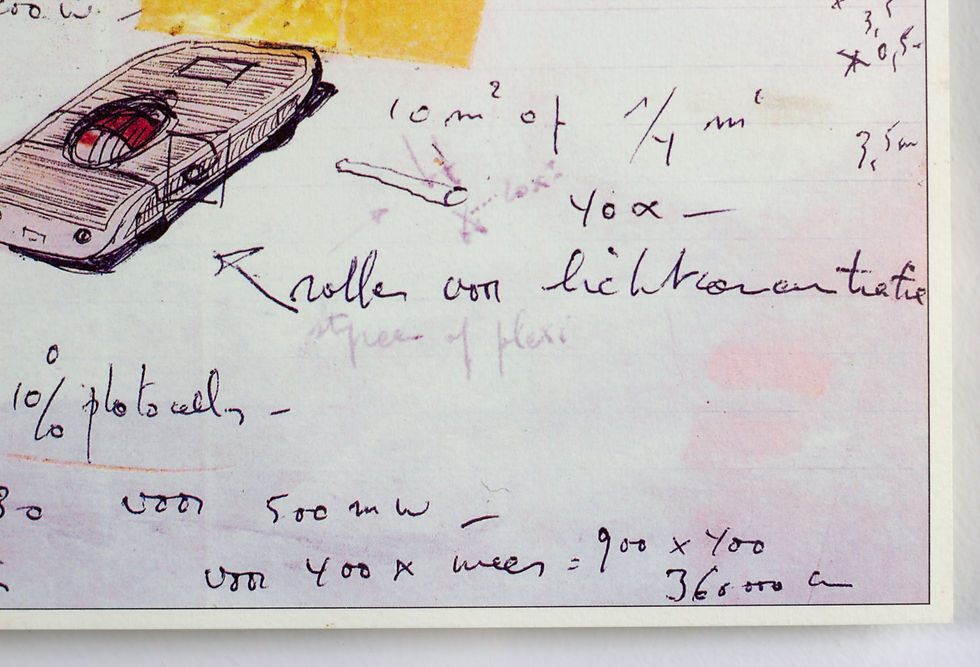 00 W. -
3,5
x 0,5-
10 m² of 1/4 m²
3,5m
40 x —
rollen voor lichtconcentratie
of plexi
10% photocellen -
30 voor 500 mW -
voor 400 x meer = 900 x 400
360000 cm